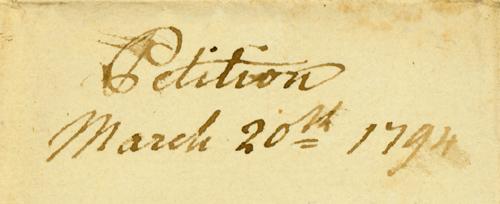 Petition
March 20th 1794